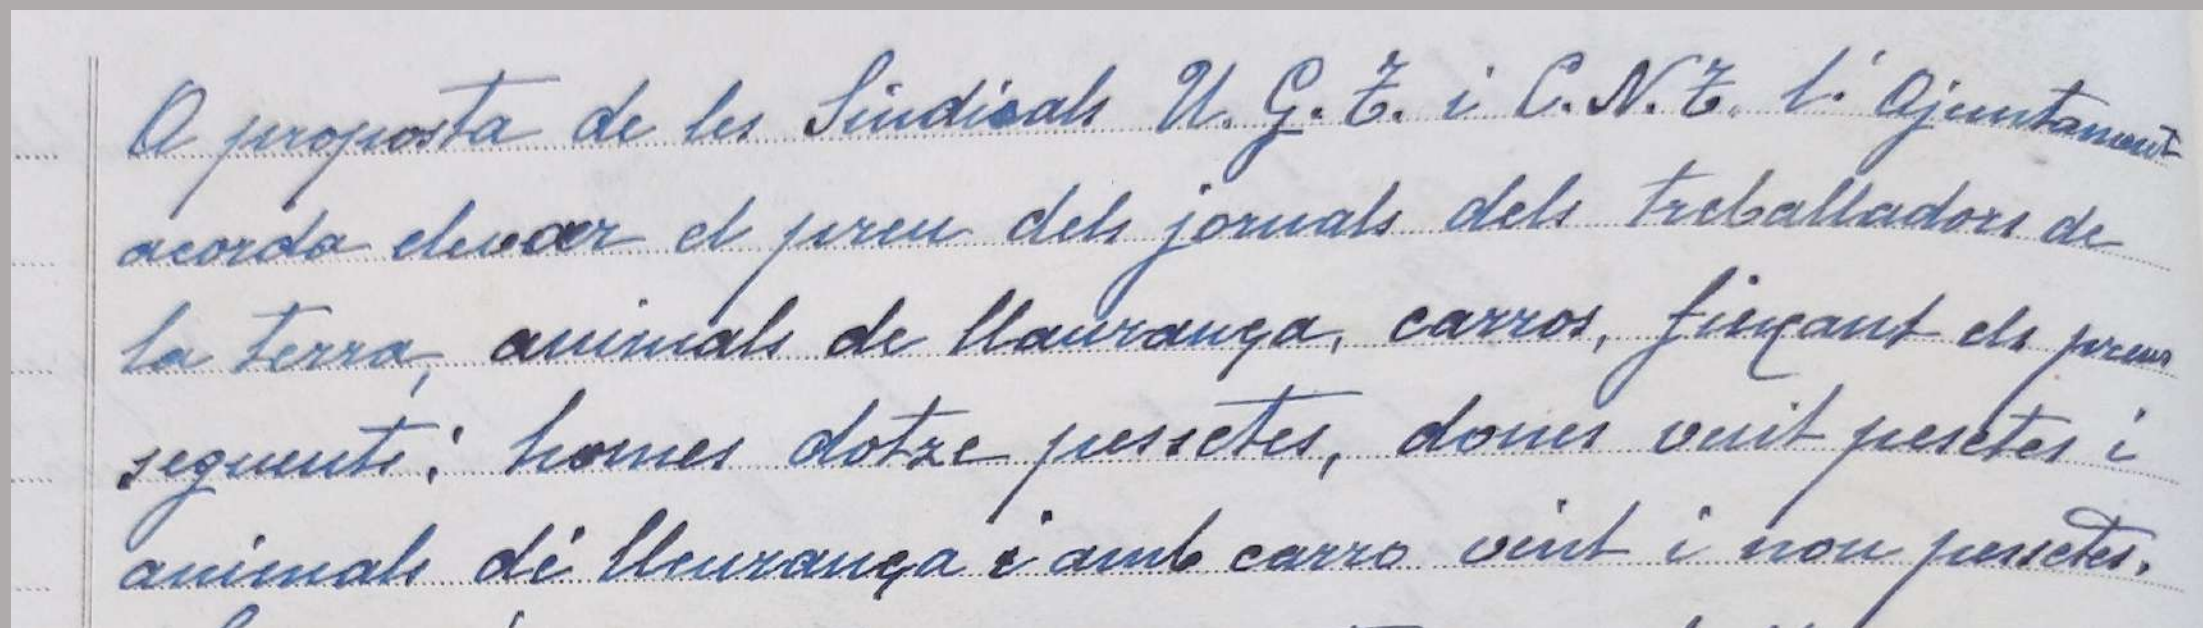 A proposta de les Sindicals U. G. T. i C. N. T. l'Ajuntament
acorda elevar el preu dels jornals dels treballadors de
la terra, animals de llaurança, carros, finçant els preus
seguents: homes dotze pessetes, dones vuit pesetes i
animals de lleurança i amb carro vint i nou pessetes.